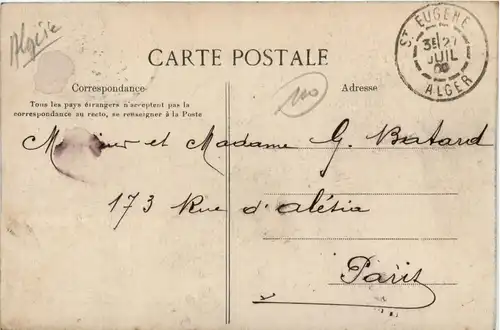 Algérie
CARTE POSTALE
Correspondance
Tous les pays étrangers n'acceptent pas la
correspondance au recto, se renseigner à la Poste
110
Adresse
ST EUGENE
27
JUIL
ALGER
Monsieur et Madame G. Batard
173 Rue d'alésia
Paris